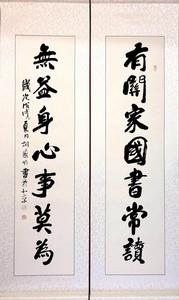 有關家國書常讀
無益身心事莫為
歲次戊戌夏月
書於北京